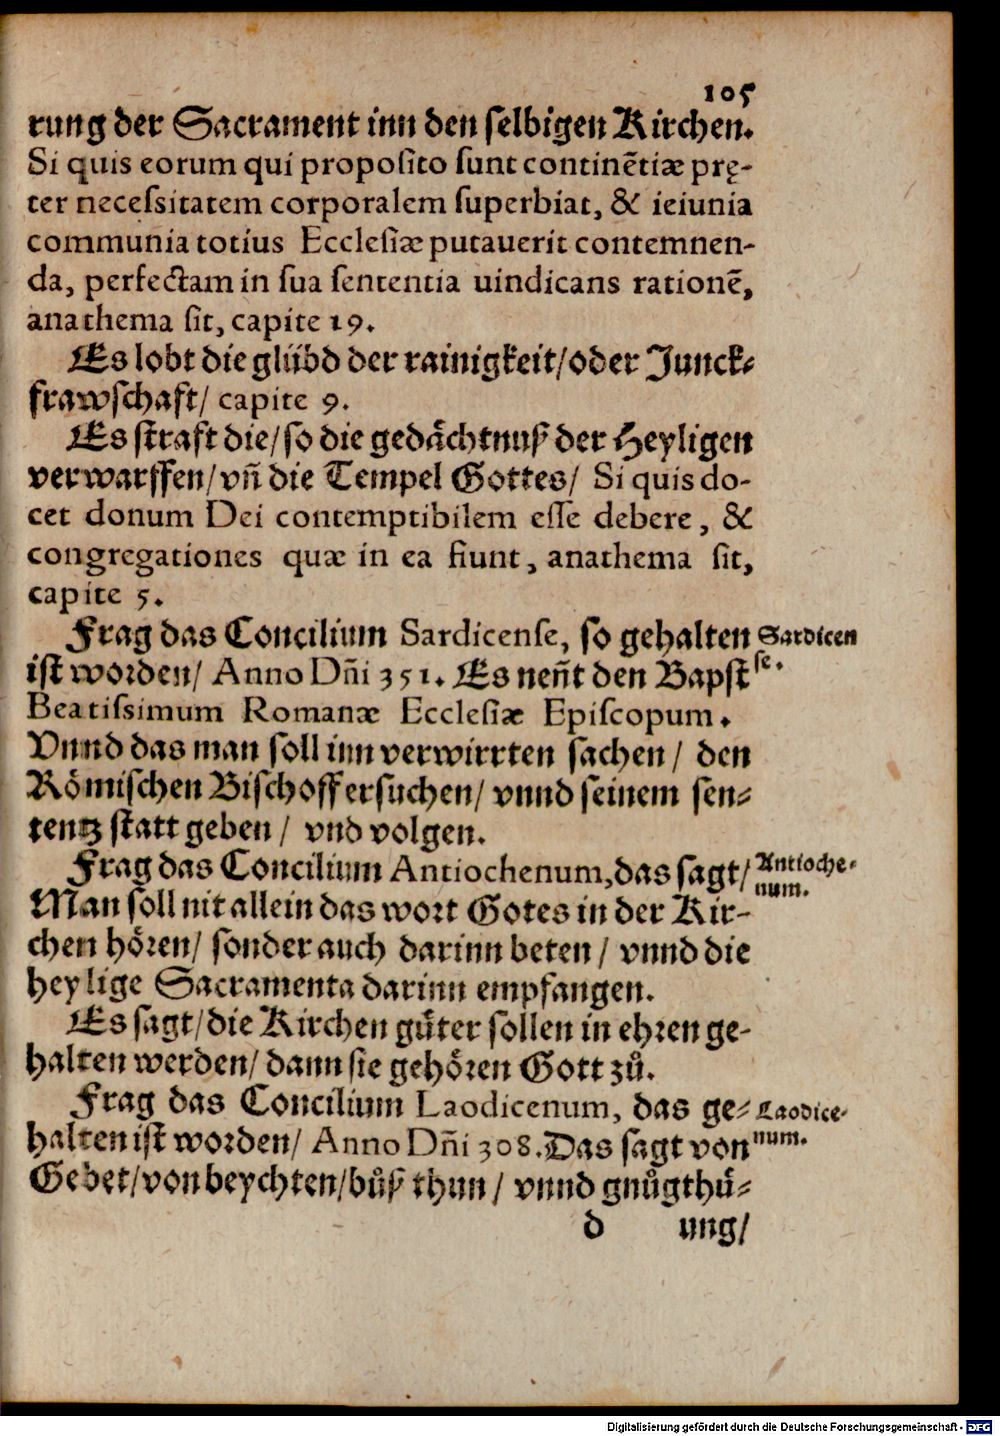 105
rung der Sacrament inn den selbigen Kirchen.
Si quis eorum qui proposito sunt continētiæ prę-
ter necessitatem corporalem superbiat, & ieiunia
communia totius Ecclesiæ putauerit contemnen-
da, perfectam in sua sententia uindicans rationē,
anathema sit, capite 19.
Es lobt die glübd der rainigkeit/oder Junck-
frawschaft/ capite 9.
Es straft die/so die gedächtnuß der Heyligen
verwarffen/vñ die Tempel Gottes/ Si quis do-
cet donum Dei contemptibilem esse debere, &
congregationes quæ in ea fiunt, anathema sit,
capite 5.
Frag das Concilium Sardicense, so gehalten Sardicen
ist worden/ Anno Dñi 351. Es neñt den Bapst se.
Beatissimum Romanæ Ecclesiæ Episcopum.
Vnnd das man soll inn verwirrten sachen/ den
Römischen Bischoff ersuchen/ vnnd seinem sen-
tentz statt geben/ vnd volgen.
Frag das Concilium Antiochenum, das sagt/ Antioche-
Man soll nit allein das wort Gotes in der Kir- num.
chen hören/ sonder auch darinn beten/ vnnd die
heylige Sacramenta darinn empfangen.
Es sagt/die Kirchen gůter sollen in ehren ge-
halten werden/ dann sie gehören Gott zů.
Frag das Concilium Laodicenum, das ge- Laodice-
halten ist worden/ Anno Dñi 308. Das sagt von num.
Gebet/von beychten/bůß thun/ vnnd gnůgthů-
d ung/
Digitalisierung gefördert durch die Deutsche Forschungsgemeinschaft - DFG